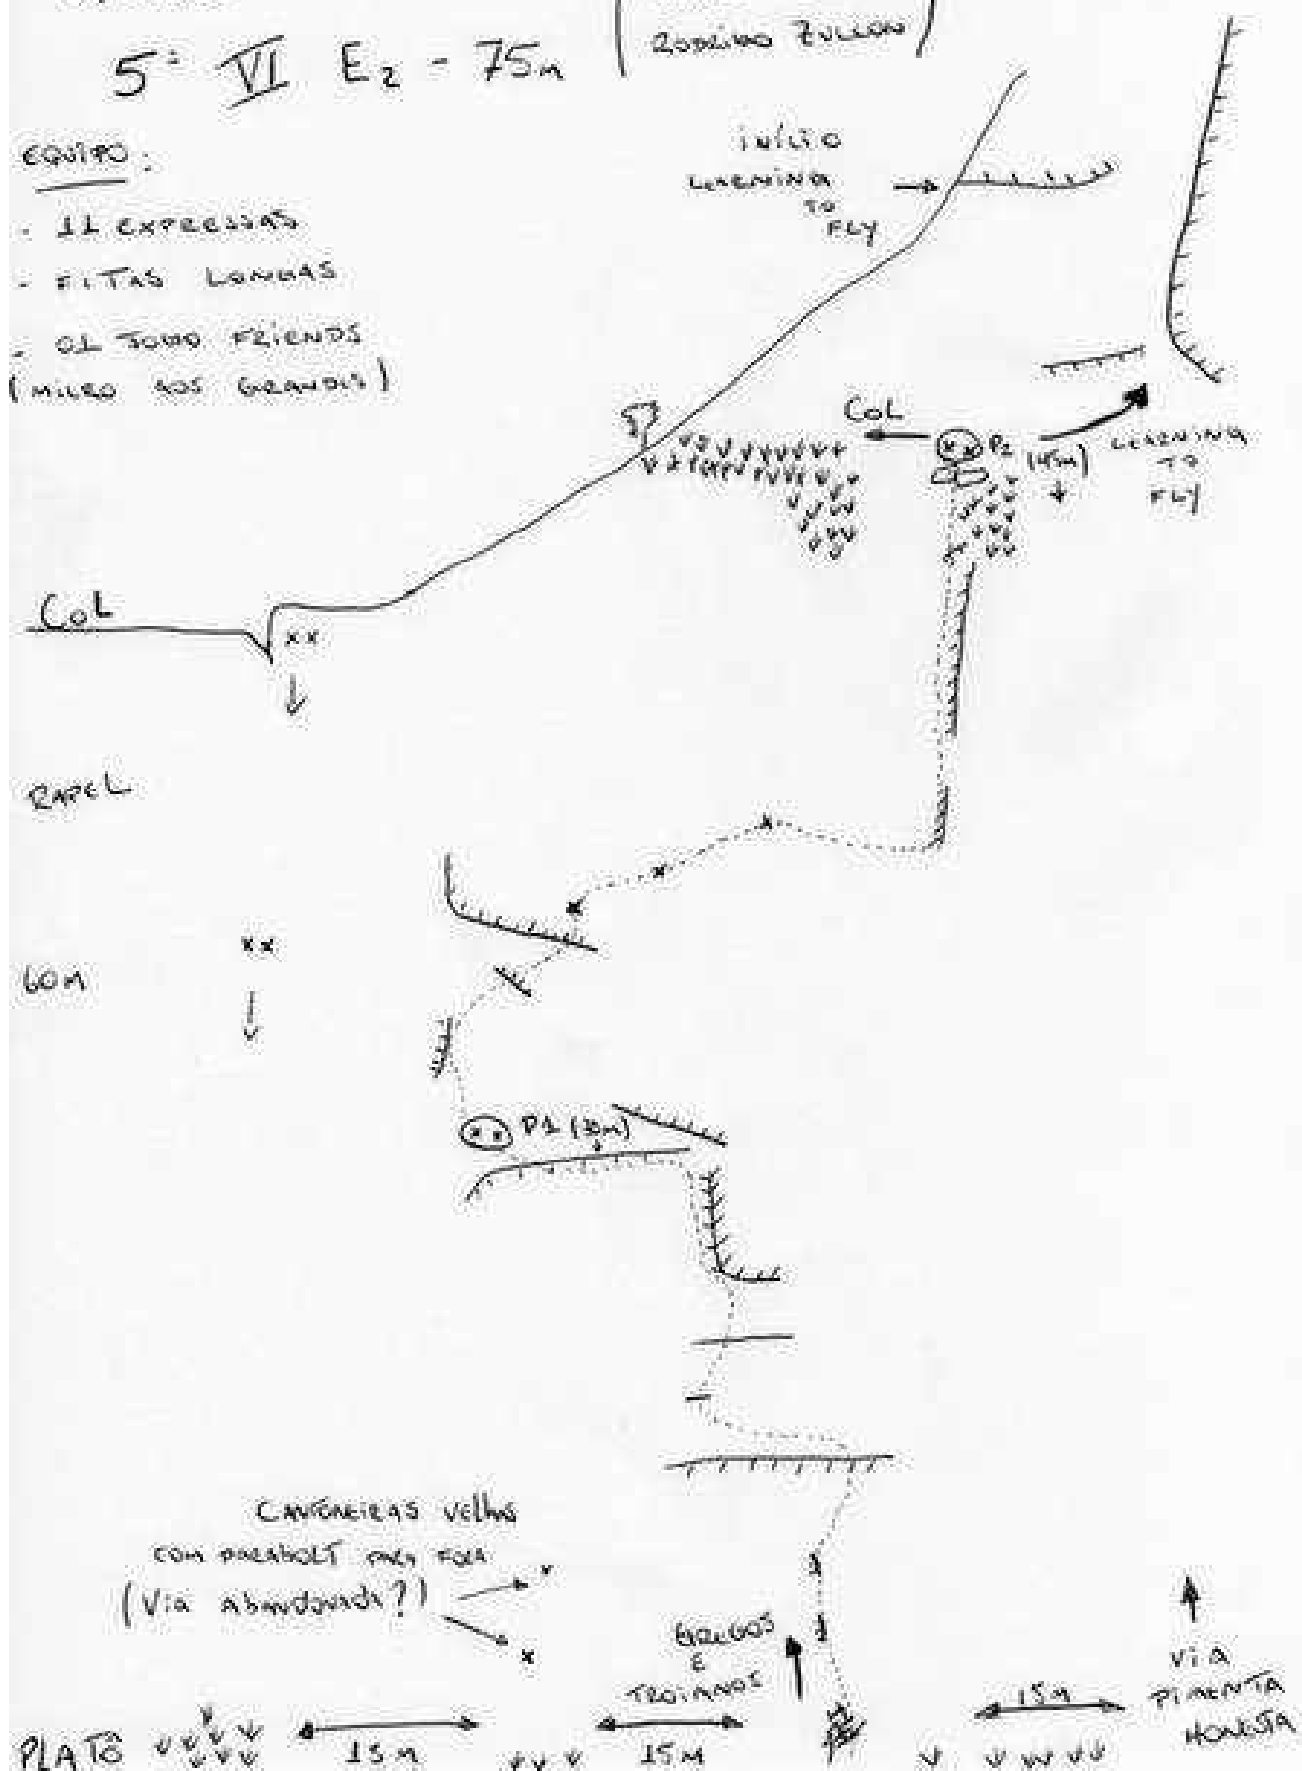 5º VI E2 - 75m
RODRIGO ZULLON
EQUIPO:
- 11 EXPRESSAS
- FITAS LONGAS
- 01 JOGO FRIENDS
(MICRO AOS GRANDES)
INÍCIO
LEARNING
TO
FLY
COL
P2
(45m)
LEARNING
TO
FLY
COL
XX
RAPEL
60M
XX
P1 (30m)
CANTONEIRAS VELHAS
COM PARABOLT PARA FORA
(VIA ABANDONADA?)
GREGOS
E
TROIANOS
VIA
PIMENTA
HONESTA
15M
PLATÔ
15M
15M